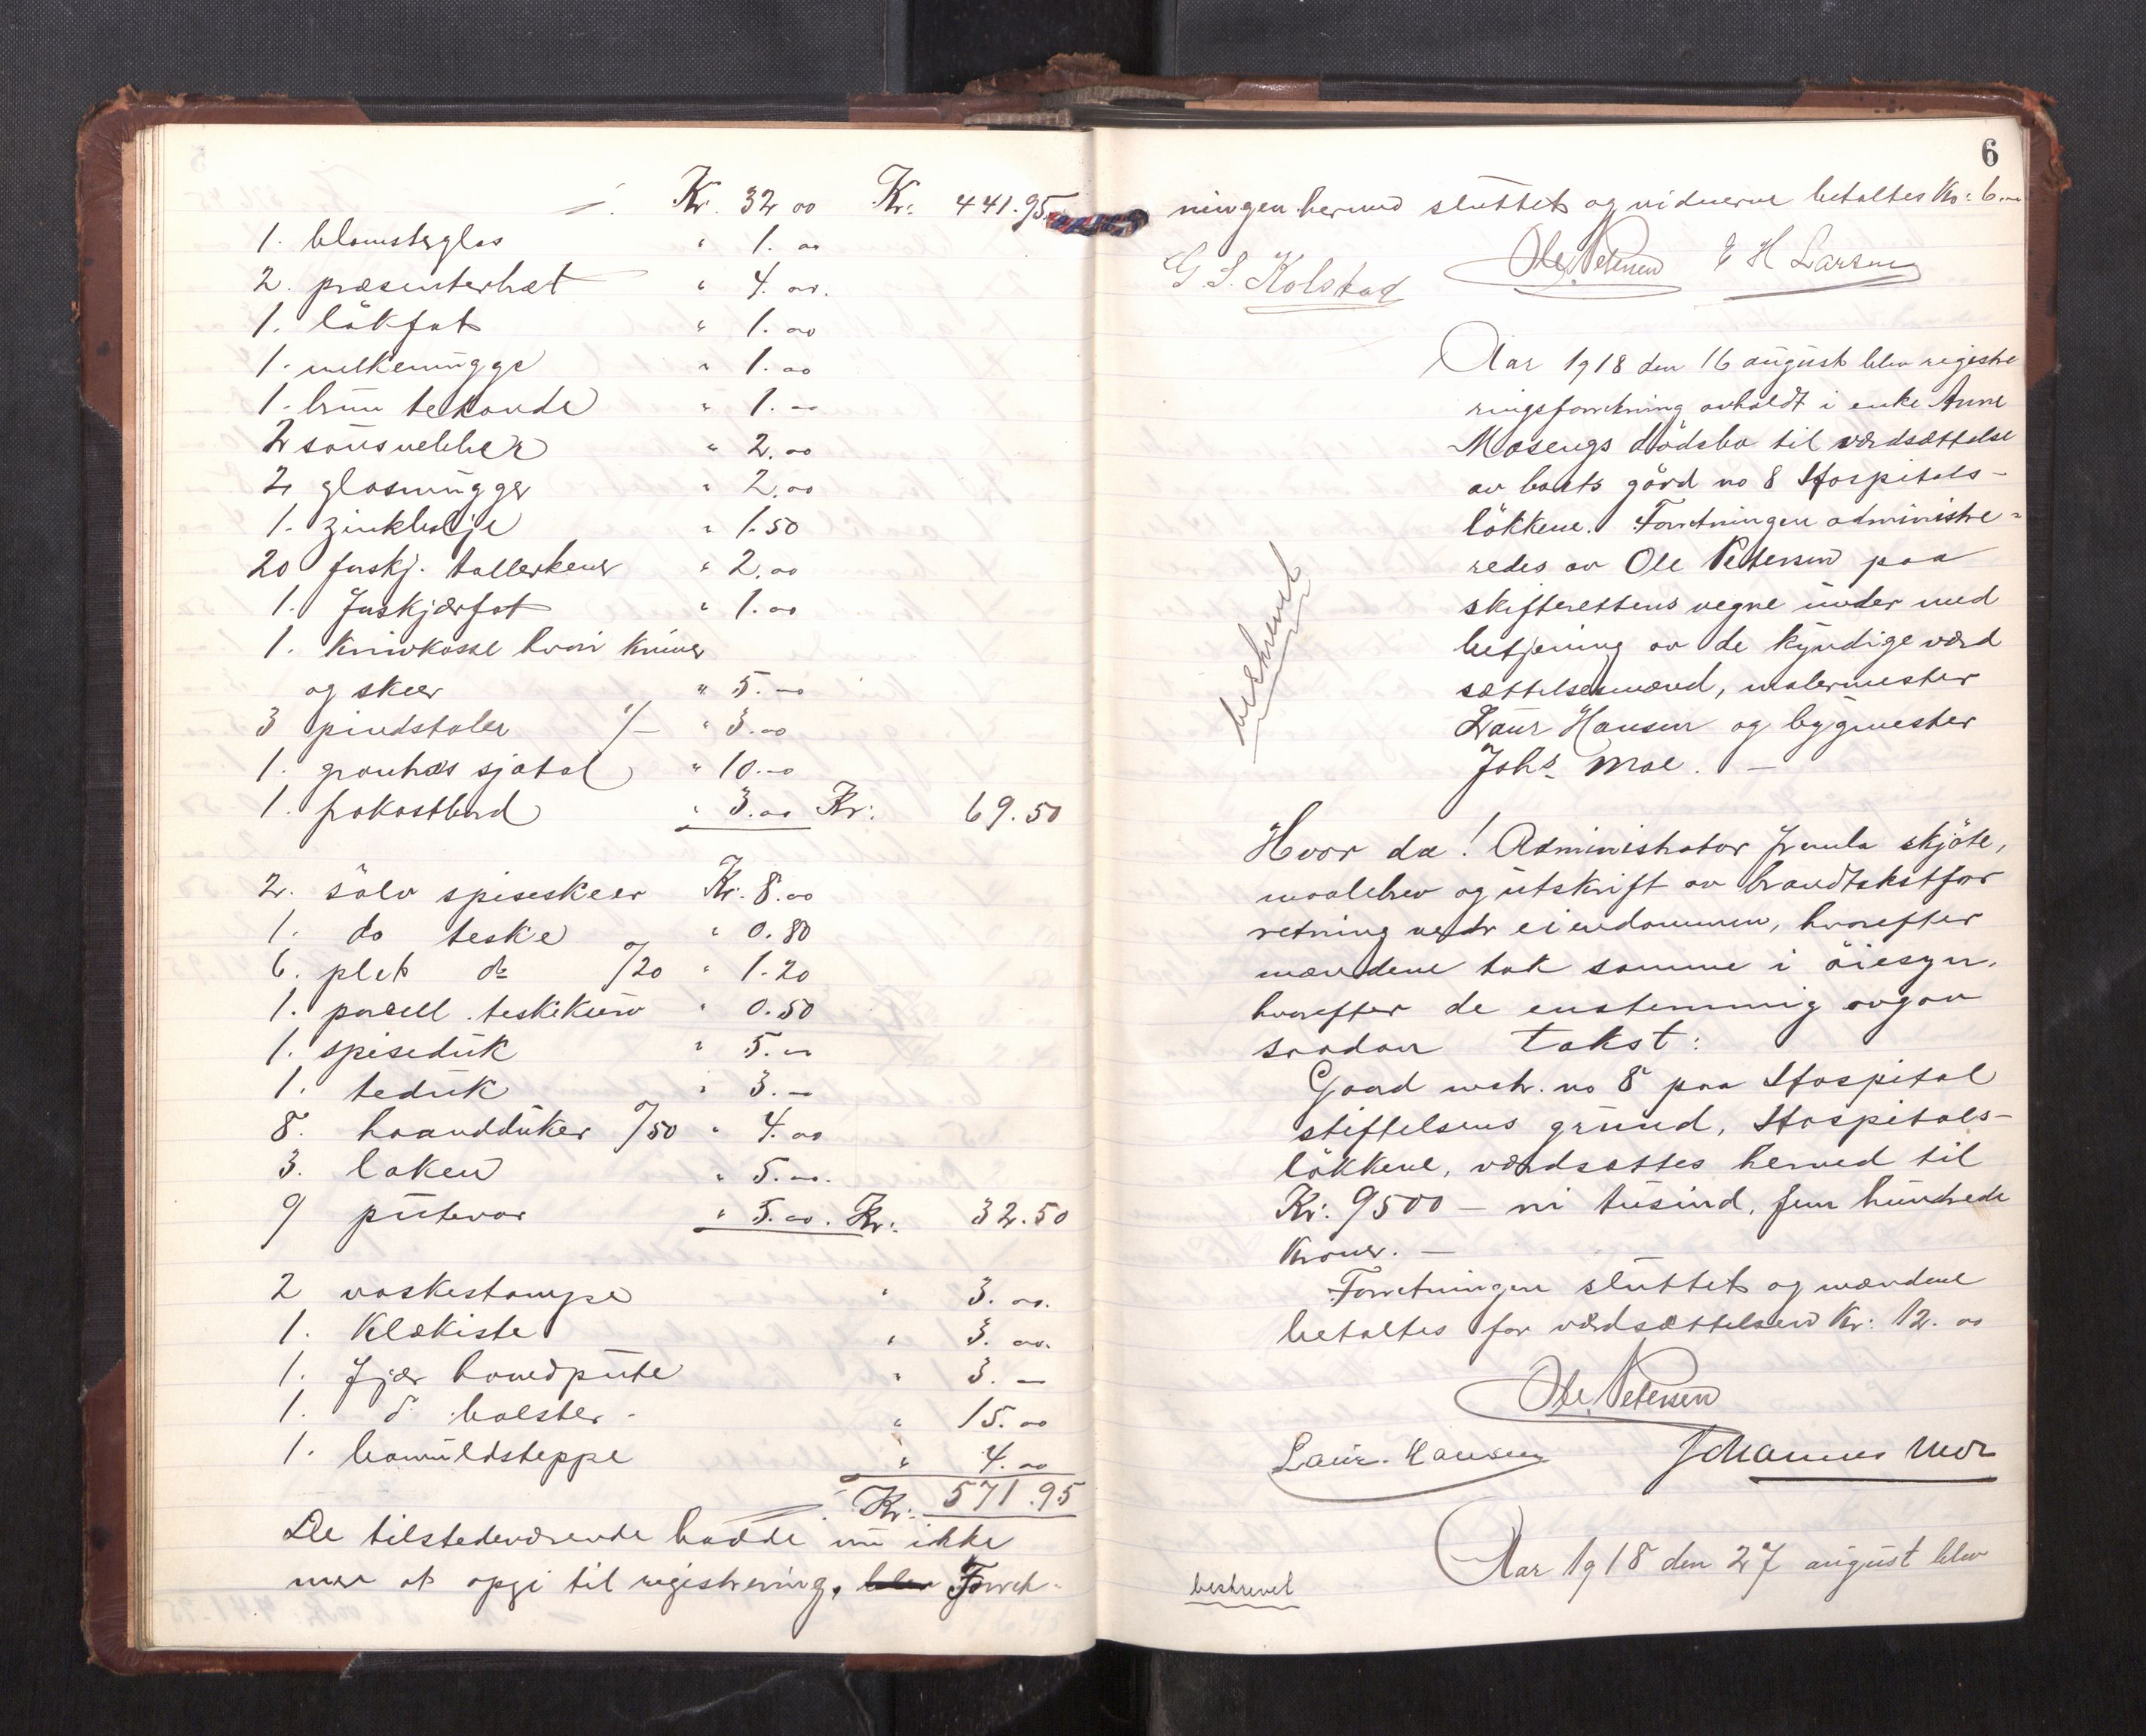 Kr. 32 00 Kr: 441.95
1. blomsterglas " 1. 00
2. præsenterbræt " 4. 00.
1. løkfat " 1. 00
1. melkemugge " 1. 00
1. brun tekande " 1. 00
2 sausnebber " 2. 00
2 glasmugger " 2. 00
1. zinkbalje " 1.50
20 forskj. tallerkener " 2. 00
1. forskjærfat " 1. 00
1. knivkasse hvori kniver
og skeer " 5. 00
3 pindstoler 1/- " 3. 00
1. graahæs sjatol " 10. 00
1. frokostbord " 3. 00 Kr: 69.50
2. sølv spiseskeer Kr. 8. 00
1. do teske " 0.80
6. plet do /20 " 1.20
1. porcell. teskekurv " 0.50
1. spisedük " 5. 00
1. tedük " 3. 00
8. haanddüker /50 " 4. 00
3. laken " 5. 00.
9 pütevar " 5. 00. Kr: 32.50
2 vaskestampe " 3. 00.
1. Klækiste " 3. 00.
1. Fjær hovedpüte " 3. —
1. do bolster - " 15. 00
1. bomüldsteppe " 4. 00
Kr: 571.95
De tilstedeværende hadde nü ikke
mer at opgi til registrering, blev Forret-
6
ningen hermed sluttet og vidnerne betaltes Kr: 6. 00
G S. Kolstad Ole Petersen E H Larsen
Aar 1918 den 16 august blev registre
ringsforretning avholdt i enke Anne
Mosengs dødsbo til værdsættelse
av boets gård no 8 Hospitals-
løkkene. Forretningen administre-
redes av Ole Petersen paa
skifterettens vegne under med
betjening av de kyndige værd
sættelsesmænd, malermester
Laur Hansen og bygmester
Johs. Moe. —
beskrevet
Hvor da! Administrator fremla skjøte,
maalebrev og utskrift av brandtakstfor
retning vedr eiendommen, hvorefter
mændene tok samme i øiesyn,
hvorefter de enstemmig avgav
saadan takst:
Gaard mstr. no 8 paa Hospital
stiftelsens grund, Hospitals-
løkkene, værdsættes herved til
Kr: 9500 — ni tusind, fem hundrede
Kroner. —
Forretningen sluttet og mændene
betaltes for værdsættelsen Kr: 12. 00
Ole Petersen
Laur. Hansen Johannes Moe
Aar 1918 den 27 august blev
beskrevet